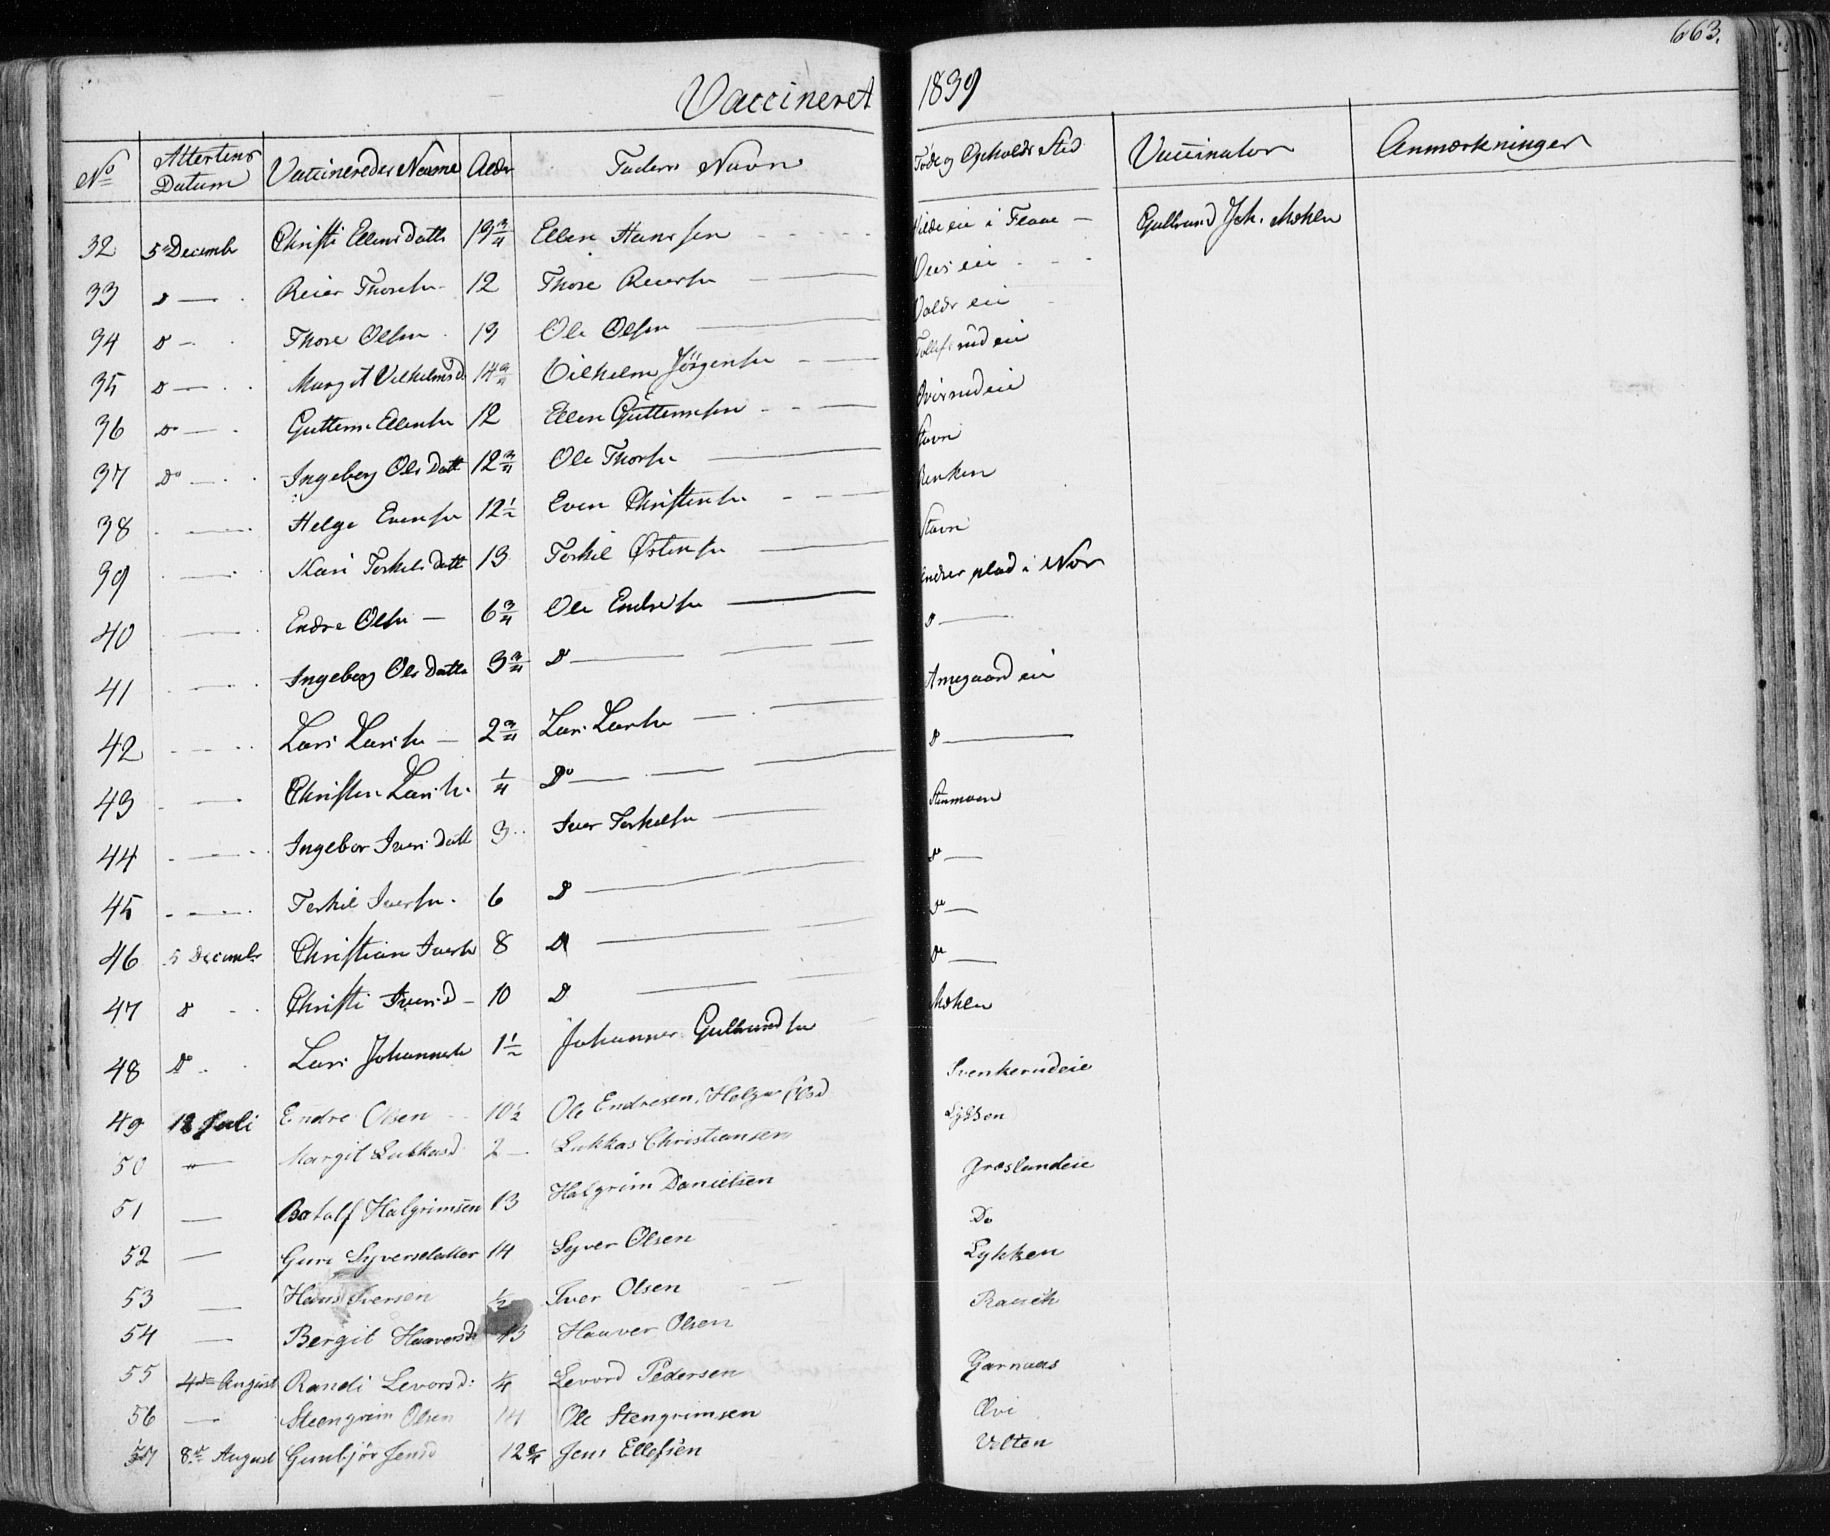 663.
Vaccineret 1839
No Attestens Datum Vaccineredes Navne Alder Faders Navn Føde og Opholds Sted Vaccinator Anmærkninger
32 5 Decembr Christi Ellensdatte 13 3/4 Ellen Hansen eie i Flaae - Gulbrand Joh. Mohen
33 D - Reier Thoresen 12 Thore Reiersen eie
34 D - Thore Olsen 13 Ole Olsen eie
35 D - Margit Vilhelmsd 14 3/4 Vilhelm Jörgensen rud eie
36 Do - Guttorm Ellensen 12 Ellen Guttormsen rud eie
37 Do - Ingeborg Olsdatt 12 3/4 Ole Thorsen Stavn
38 - Helge Evensen 12 1/2 Even Christensen
39 - Kari Terkelsdatt 13 Terkel Østensen Stavn
40 - Endre Olsen - 6 3/4 Ole Endresen Endresplads i Nor
41 - Ingeborg Olsdatte 3 3/4 D - D -
42 - Lars Larsen - 2 3/4 Lars Larsen Arnegaard eie
43 - Christen Larsen 1/4 Do - D -
44 - Ingebor Iversdatt 3 Iver Terkelsen Stenmoen
45 - Terkil Iversen 6 D - Do -
46 5 Decembr Christian Iversen 8 D - Do -
47 D Christi Iversd - 10 D - Do -
48 D Lars Johannesen 1 1/2 Johannes Gulbrandsen Mohen
49 18 Juli Endre Olsen 10 1/2 Ole Endresen, Helga Olsd Svenkerudeie
50 " - Margit Lukkasd 2 - Lukkas Christiansen Lykken
51 - Botolf Halgrimsen 13 Halgrim Danielsen Græslandeie
52 - Guri Syversdatter 14 Syver Olsen Do
53 - Hans Iversen 1/2 Iver Olsen Lykken
54 - Bergit Haaversd 13 Haaver Olsen
55 4de August Randi Levorsd: 1/4 Levord Pedersen Garnaas
56 - Steengrim Olsen 14 Ole Stengrimsen
57 8de August Gunbjör Jensd 12 3/4 Jens Ellefsen Velten